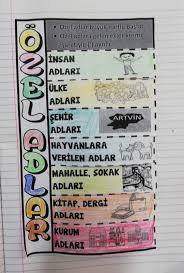 ÖZEL ADLAR
• Özel adlar büyük harfle başlar.
• Özel adlara gelen ekler kesme
işaretiyle (') ayrılır.
İNSAN
ADLARI
ÜLKE
ADLARI
ŞEHİR
ADLARI
ARTVİN
HAYVANLARA
VERİLEN ADLAR
MAHALLE, SOKAK
ADLARI
KİTAP, DERGİ
ADLARI
KURUM
ADLARI